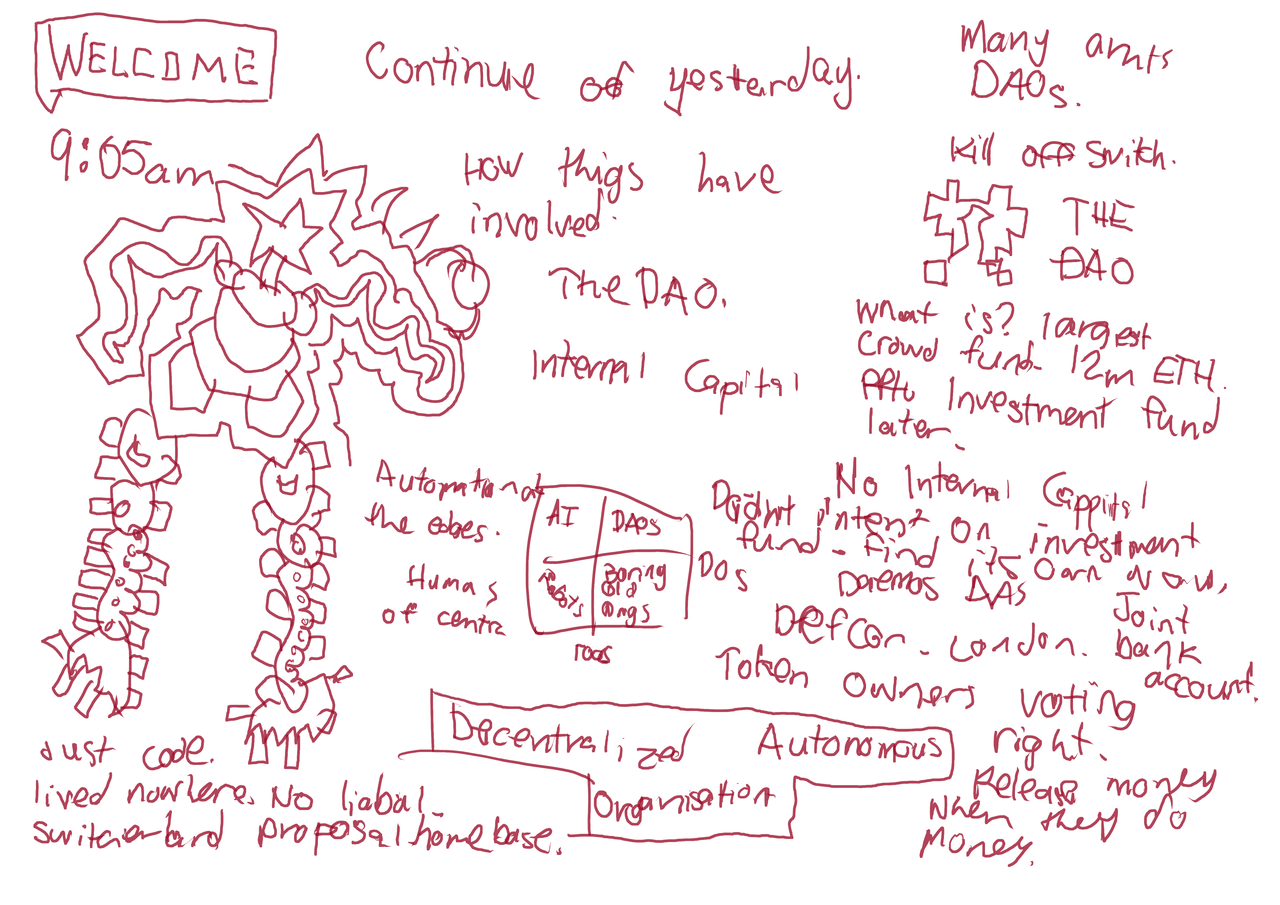 WELCOME
9:05am
Continue of yesterday.
HOW thigs have
involved.
The DAO.
Internal Capital
Many amts
DAOs.
Kill off switch.
THE
DAO
What is? largest
Crowd fund. 12m ETH.
Investment fund
later.
No Internal Cappital
Didnt intenz on investment
fund - Find its own now,
Daemos DAS
DEFCon. London. Joint
bank
account.
Token owners voting
right.
Release money
when they do
Money.
Automation at
the edges.
Humas
of centra
AI
DAOs
Robots
Boring
Old
Orgs
DOs
Decentralized Autonomous
Organisation
Just code.
lived nowhere. No liabal
switcherbard proposal homebase.